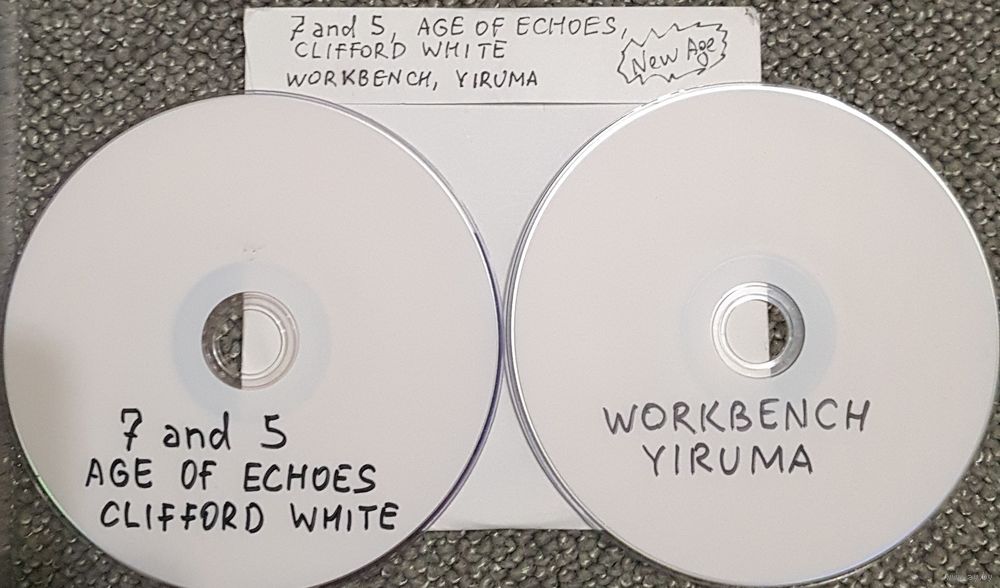 7 and 5, AGE OF ECHOES,
CLIFFORD WHITE
WORKBENCH, YIRUMA
New Age
7 and 5
AGE OF ECHOES
CLIFFORD WHITE
WORKBENCH
YIRUMA